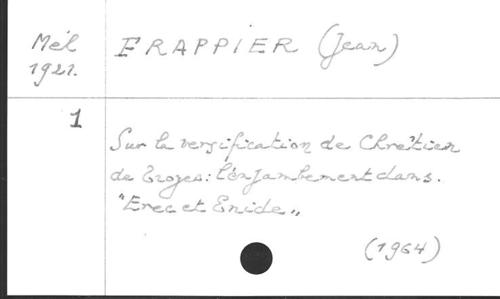 Mél FRAPPIER (Jean)
1921.
1
Sur la versification de Chrétien
de Troyes: l'enjambement dans.
"Erec et Enide"
(1964)